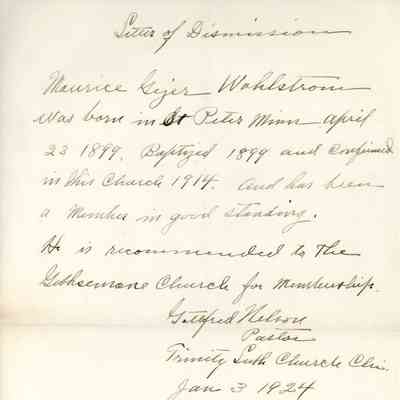 Letter of Dismission
Maurice Geijer Wahlstrom
was born in St Peter Minn April
23 1899. Baptized 1899 and Confirmed
in this Church 1914. And has been
a Member in good standing.
He is recommended to the
Gethsemane Church for Membership.
Gottfred Nelson
Pastor
Trinity Luth Church Chi.
Jan 3 1924